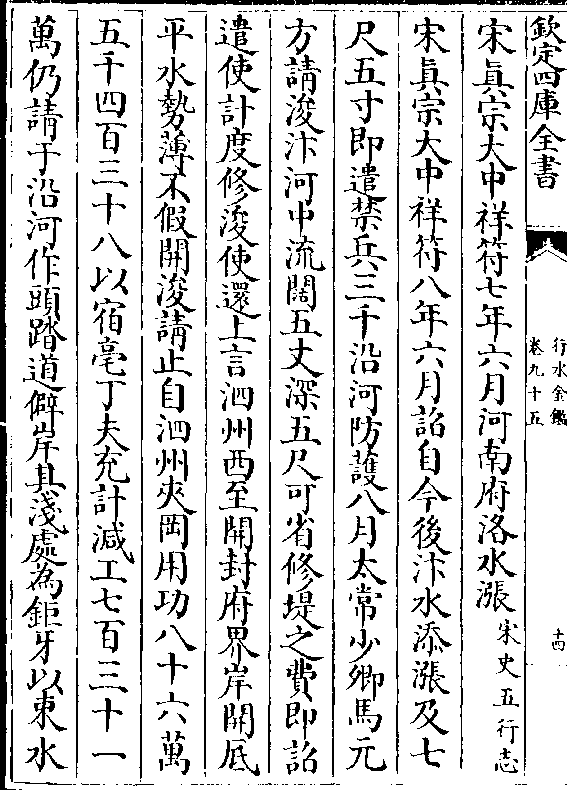 欽定四庫全書
行水金鑑
卷九十五
十四
宋眞宗大中祥符七年六月河南府洛水漲宋史五行志
宋眞宗大中祥符八年六月詔自今後汴水添漲及七
尺五寸即遣禁兵三千沿河防護八月太常少卿馬元
方請浚汴河中流闊五丈深五尺可省修堤之費即詔
遣使計度修浚使還上言泗州西至開封府界岸開底
平水勢薄不假開浚請止自泗州夾岡用功八十六萬
五千四百三十八以宿亳丁夫充計減工七百三十一
萬仍請于沿河作頭踏道僻岸其淺處為鉅牙以束水